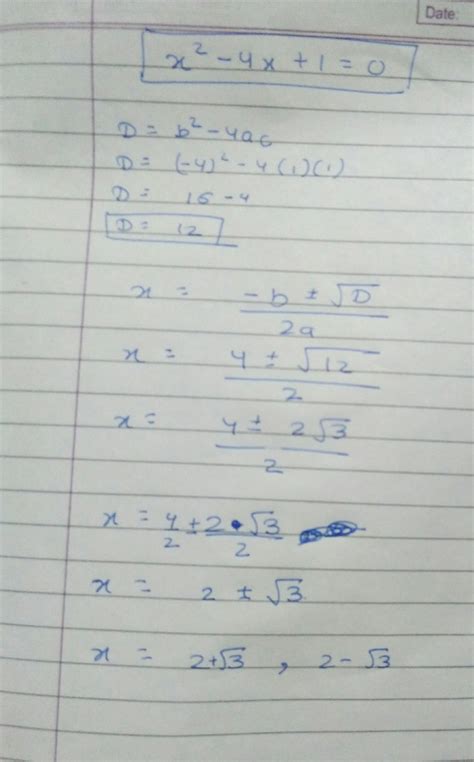 Date:
x² - 4x + 1 = 0
D = b² - 4ac
D = (-4)² - 4(1)(1)
D = 16 - 4
D = 12
x = -b ± √D / 2a
x = 4 ± √12 / 2
x = 4 ± 2√3 / 2
x = 4/2 ± 2·√3 / 2
x = 2 ± √3
x = 2+√3 , 2-√3